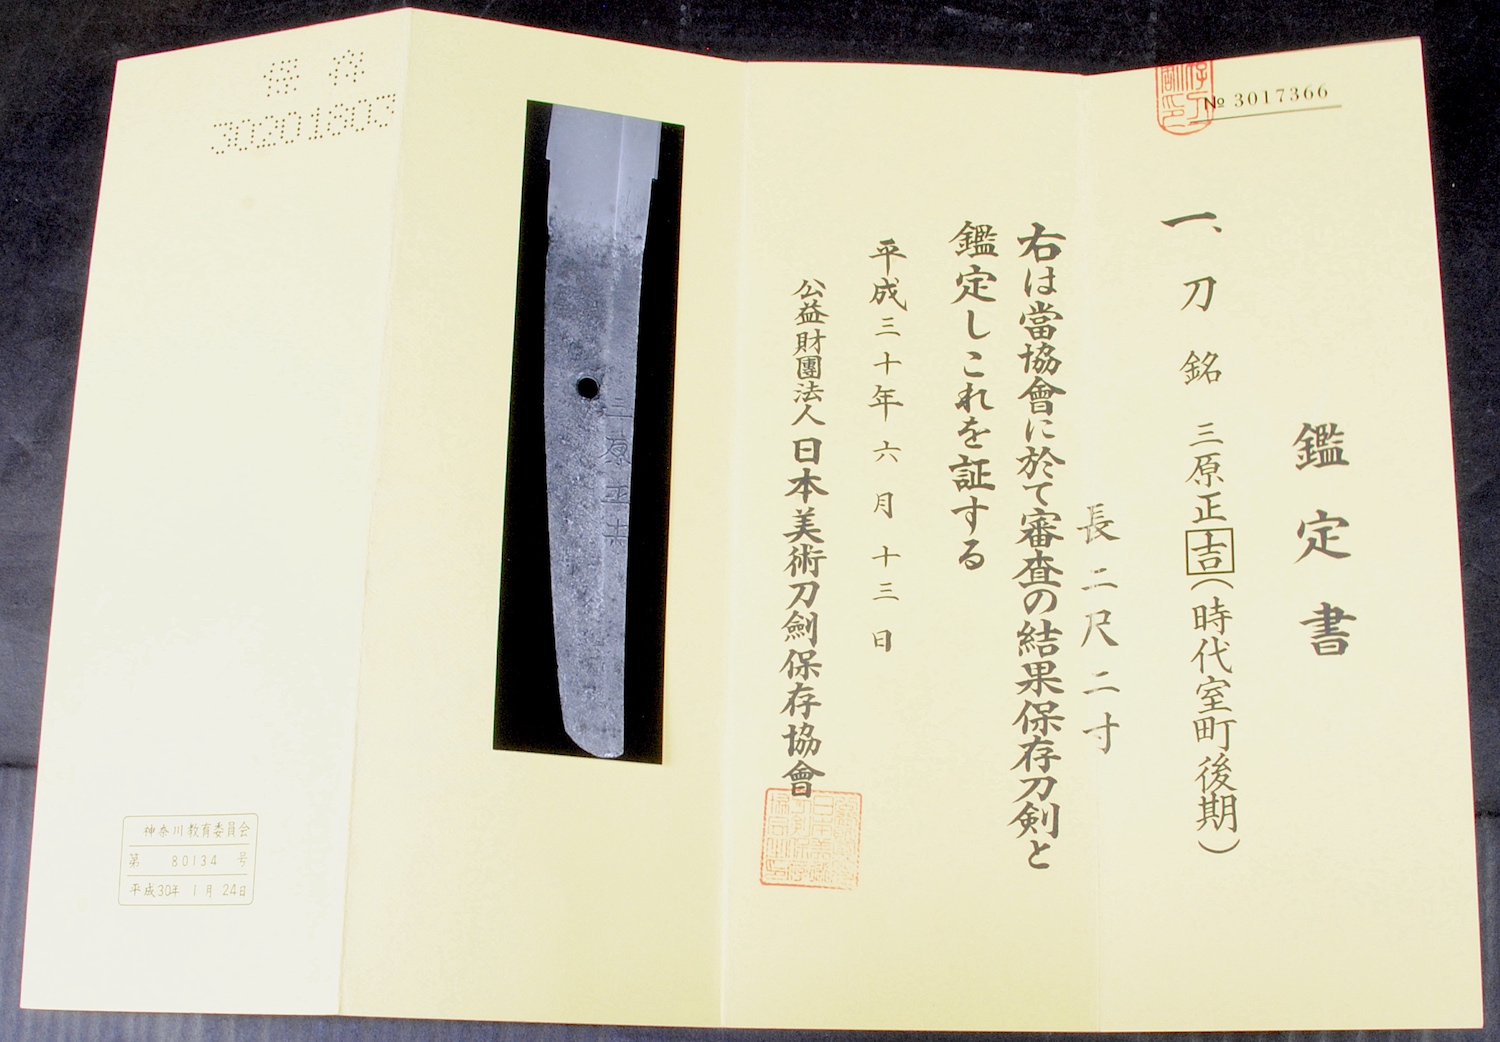 № 3017366
鑑定書
一、刀 銘 三原正吉(時代室町後期)
長二尺二寸
右は當協會に於て審査の結果保存刀剣と
鑑定しこれを証する
平成三十年六月十三日
公益財團法人日本美術刀劍保存協會
三原正吉
保存
30201803
神奈川教育委員会
第 80134 号
平成30年 1月 24日